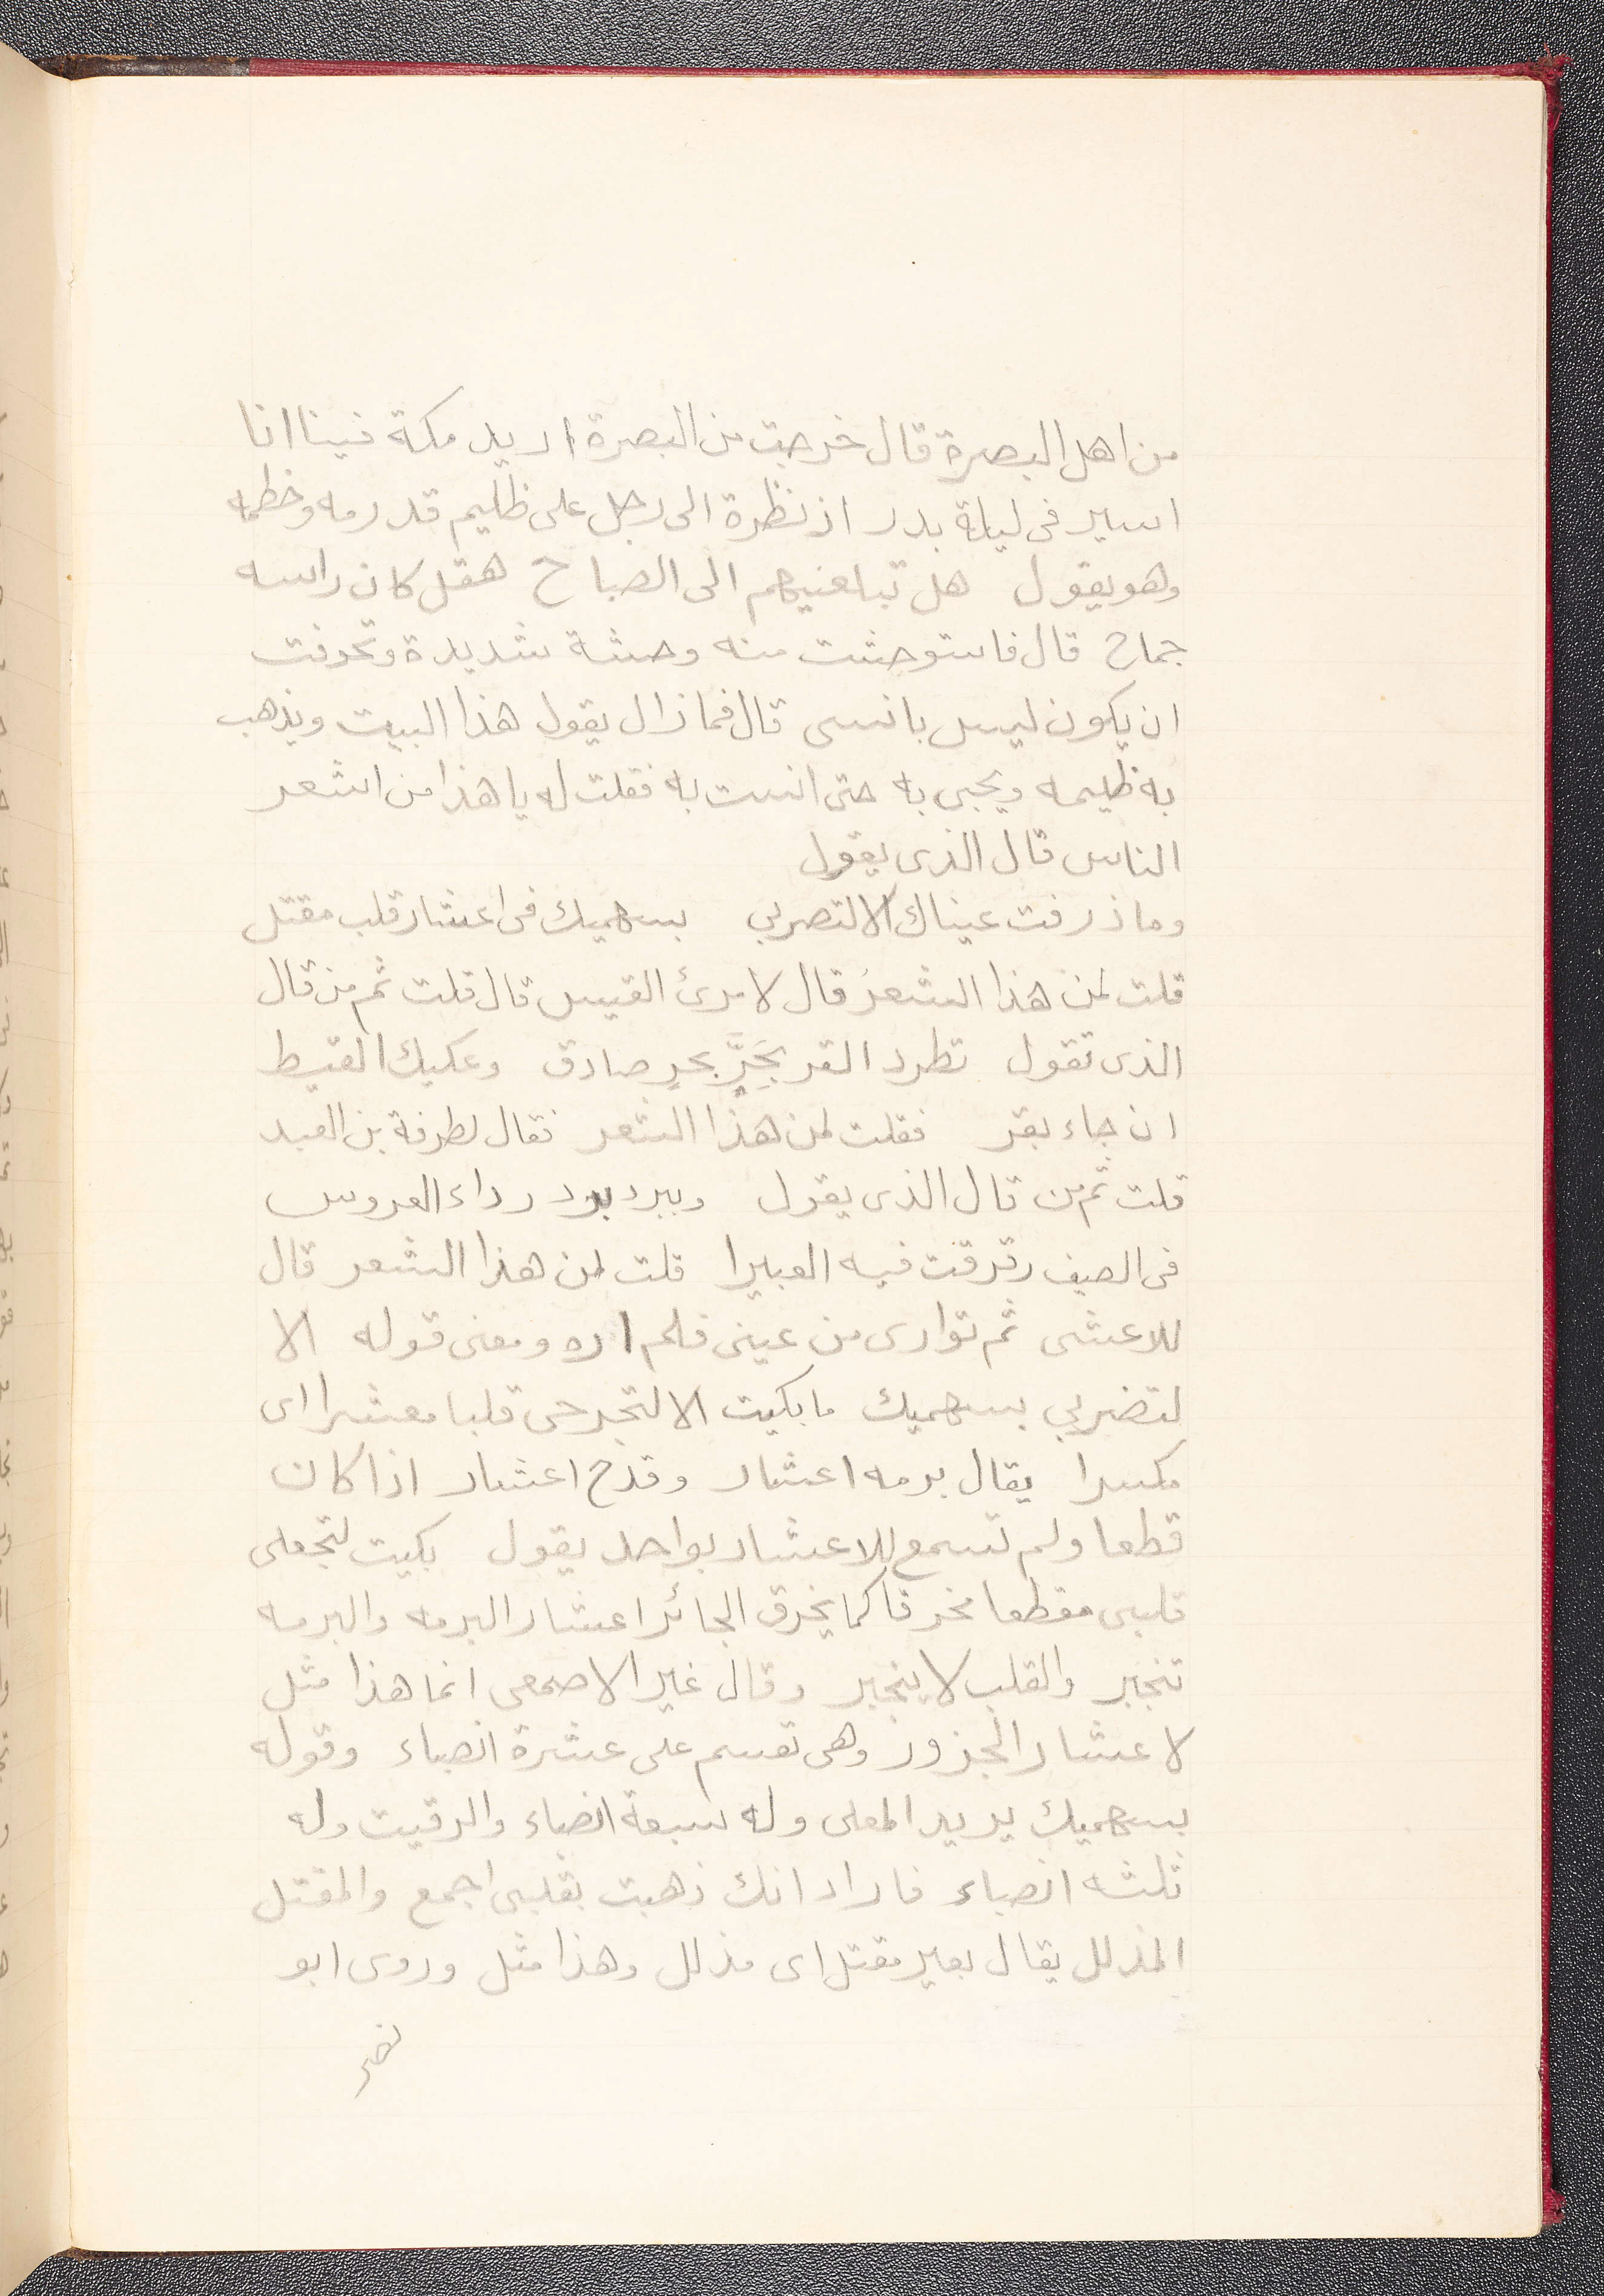 من اهل البصرة قال خرجت من البصرة اريد مكة فبينا انا
اسير فى ليلة بدر اذ نظرة الى رجل على ظليم قد زمه وخطمه
وهو يقول هل تبلغنيهم الى الصباح هقل كان راسه
جماح قال فاستوحشت منه وحشة شديدة وتخوفت
ان يكون ليس بانسى قال فما زال يقول هذا البيت ويذهب
به ظليمه ويجى به حتى انست به فقلت له يا هذا من اشعر
الناس قال الذى يقول
وما ذرفت عيناك الا لتضربى بسهميك فى اعشار قلب مقتل
قلت لمن هذا الشعر قال لامرئ القيس قال قلت ثم من قال
الذى تقول تطرد القر بَحَرٍّ بحرٍ صادق وعكيك القيط
ان جاء بقر فقلت لمن هذا الشعر فقال لطرفة بن العبد
قلت ثم من قال الذى يقول وببرد برد رداء العروس
فى الصيف رقرقت فيه العبيرا قلت لمن هذا الشعر قال
للاعشى ثم توارى من عينى فلم اره ومعنى قوله الا
لتضربى بسهميك ما بكيت الا لتجرحى قلبا معشرا اى
مكسرا يقال برمه اعشار وقدح اعشار اذا كان
قطعا ولم تسمع للاعشار بواحد يقول بكيت لتجعلى
قلبى مقطعا مخرقا كما يخرق الجائر اعشار البرمه والبرمه
تنجبر والقلب لا ينجبر وقال غير الاصمعى انما هذا مثل
لاعشار الجزور وهى تقسم على عشرة انصباء وقوله
بسهميك يريد المعلى وله سبعة انصباء والرقيب وله
ثلثه انصباء فاراد انك ذهبت بقلبى اجمع والمقتل
المذلل يقال بعير مقتل اى مذلل وهذا مثل وروى ابو
نصر